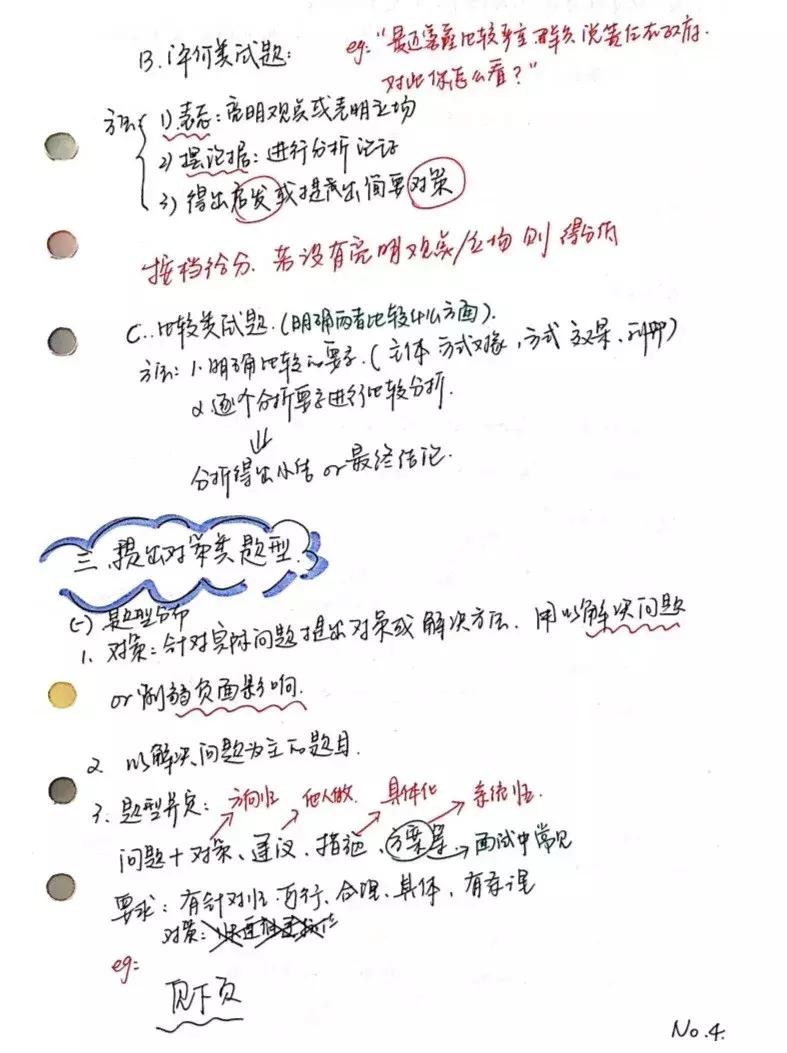 B.评价类试题:
eg:“最近雾霾比较严重,群众说责任在政府.
对此你怎么看?”
方法{ 1)表态:亮明观点或表明立场
2)摆论据:进行分析论证
3)得出启发或提出简要对策
按档给分.若没有亮明观点/立场则得分低
C.比较类试题.(明确两者比较什么方面).
方法:1.明确比较的要素.(主体 方式对象,方式 效果、)
2.逐个分析要素进行比较分析.
⇓
分析得出小结 or 最终结论.
三.提出对策类题型.
(一)题型分布
1.对策:针对实际问题提出对策或解决方法.用以解决问题
or 削弱负面影响.
2 以解决问题为主的题目.
3.题型界定:方向性 他人做 具体化 系统性.
问题+对策、建议、措施、方案等→面试中常见
要求:有针对性.可行、合理、具体,有条理
对策:
eg:
见下页
No.4.